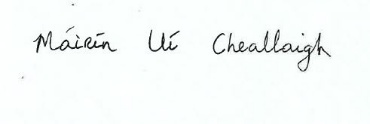 Máirín Uí Cheallaigh